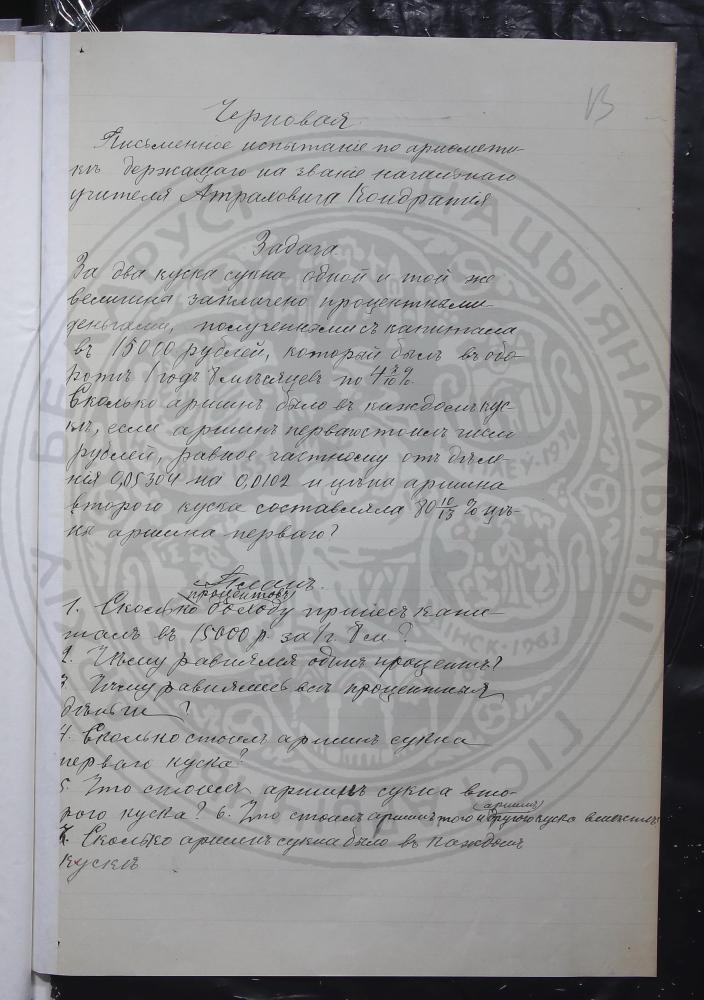 Черновая.
Письменное испытаніе по ариѳмети-
кѣ держащаго на званіе начальнаго
учителя Атраховича Кондратія
Задача
За два куска сукна одной и той же
величины заплачено процентными
деньгами, полученными съ капитала
въ 15000 рублей, который былъ въ обо-
ротѣ 1 годъ 8 мѣсяцевъ по
Сколько аршинъ было въ каждомъ кус-
кѣ, если аршинъ перваго стоилъ число
рублей, равное частному отъ дѣле-
нія 0,05304 на 0,0102 и цѣна аршина
второго куска составляла 80 10/13 % цѣ-
ны аршина перваго?
Планъ.
1. Сколько процентовъ принесъ капи-
талъ въ 15000 р. за 1 г. 8 м.?
2. Чему равнялся одинъ процентъ?
3. Чему равнялись всѣ процентныя
деньги?
4. Сколько стоилъ аршинъ сукна
перваго куска?
5. Что стоилъ аршинъ сукна вто-
рого куска? 6. Что стоилъ аршинъ того и (аршинъ) другого куска вмѣстѣ?
7. Сколько аршинъ сукна было въ каждомъ
кускѣ